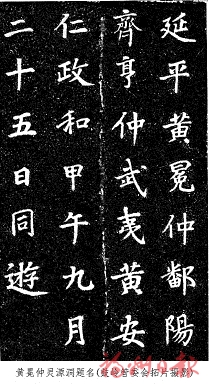 延平黃冕仲鄱陽
齊亨仲武夷黃安
仁政和甲午九月
二十五日同遊
黄冕仲灵源洞题名(鼓岭管委会拓片摄影)